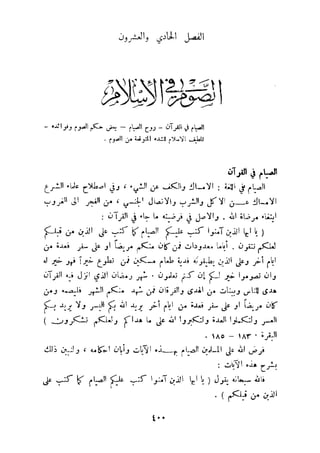 الفصل الحادي والعشرون
الصوم في الإسلام
الصيام في القرآن — روح الصيام — بعض حكم الصوم وفوائده —
تلطيف الإسلام لشدة العقوبة من الصوم .
الصيام في القرآن
الصيام في اللغة : الإمساك والكف عن الشيء ، وفي اصطلاح علماء الشرع :
الإمساك عن الأكل والشرب والاتصال الجنسي ، من الفجر إلى الغروب
ابتغاء مرضاة الله . والأصل في فرضيته ما جاء في القرآن :
( يا أيها الذين آمنوا كتب عليكم الصيام كما كتب على الذين من قبلكم
لعلكم تتقون . أياماً معدودات فمن كان منكم مريضاً أو على سفر فعدة من
أيام أخر وعلى الذين يطيقونه فدية طعام مسكين فمن تطوع خيراً فهو خير له
وان تصوموا خير لكم إن كنتم تعلمون . شهر رمضان الذي أنزل فيه القرآن
هدى للناس وبينات من الهدى والفرقان فمن شهد منكم الشهر فليصمه ومن
كان مريضاً أو على سفر فعدة من أيام أخر يريد الله بكم اليسر ولا يريد بكم
العسر ولتكملوا العدة ولتكبروا الله على ما هداكم ولعلكم تشكرون )
البقرة ١٨٣ - ١٨٥ .
فرض الله على المسلمين الصيام بهذه الآيات وأبان أحكامه ، وتبيين ذلك
بشرح هذه الآيات :
فالله سبحانه يقول ( يا أيها الذين آمنوا كتب عليكم الصيام كما كتب على
الذين من قبلكم ) .
٤٠٠